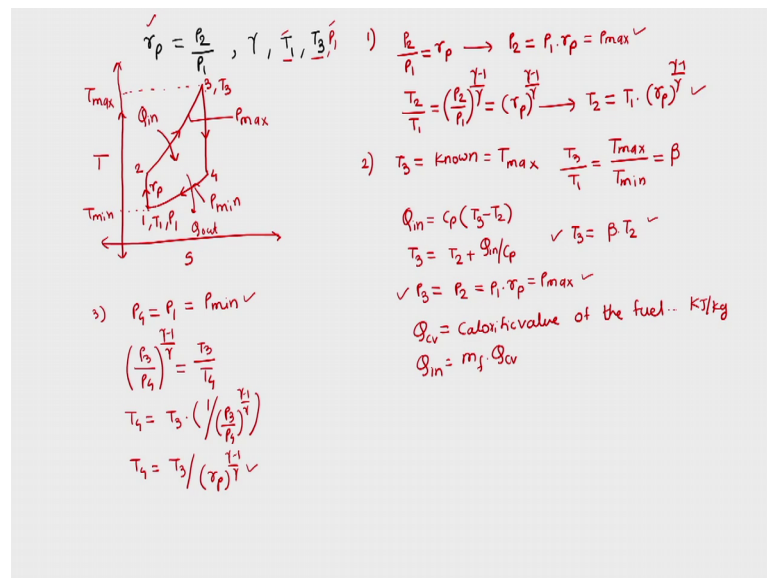 r_p = P₂/P₁ , γ, T₁, T₃ P₁
Tmax
3, T₃
Qin
Pmax
T
2
4
r_p
Pmin
Tmin
1, T₁, P₁
qout
S
1) P₂/P₁ = r_p → P₂ = P₁·r_p = Pmax ✓
T₂/T₁ = (P₂/P₁)^((γ-1)/γ) = (r_p)^((γ-1)/γ) → T₂ = T₁·(r_p)^((γ-1)/γ) ✓
2) T₃ = known = Tmax T₃/T₁ = Tmax/Tmin = β
Qin = Cp(T₃-T₂)
T₃ = T₂ + Qin/Cp ✓ T₃ = β·T₂ ✓
✓ P₃ = P₂ = P₁·r_p = Pmax ✓
Qcv = Calorific value of the fuel.. KJ/kg
Qin = mf·Qcv
3) P₄ = P₁ = Pmin ✓
(P₃/P₄)^((γ-1)/γ) = T₃/T₄
T₄ = T₃·(1/(P₃/P₄)^((γ-1)/γ))
T₄ = T₃/(r_p)^((γ-1)/γ) ✓